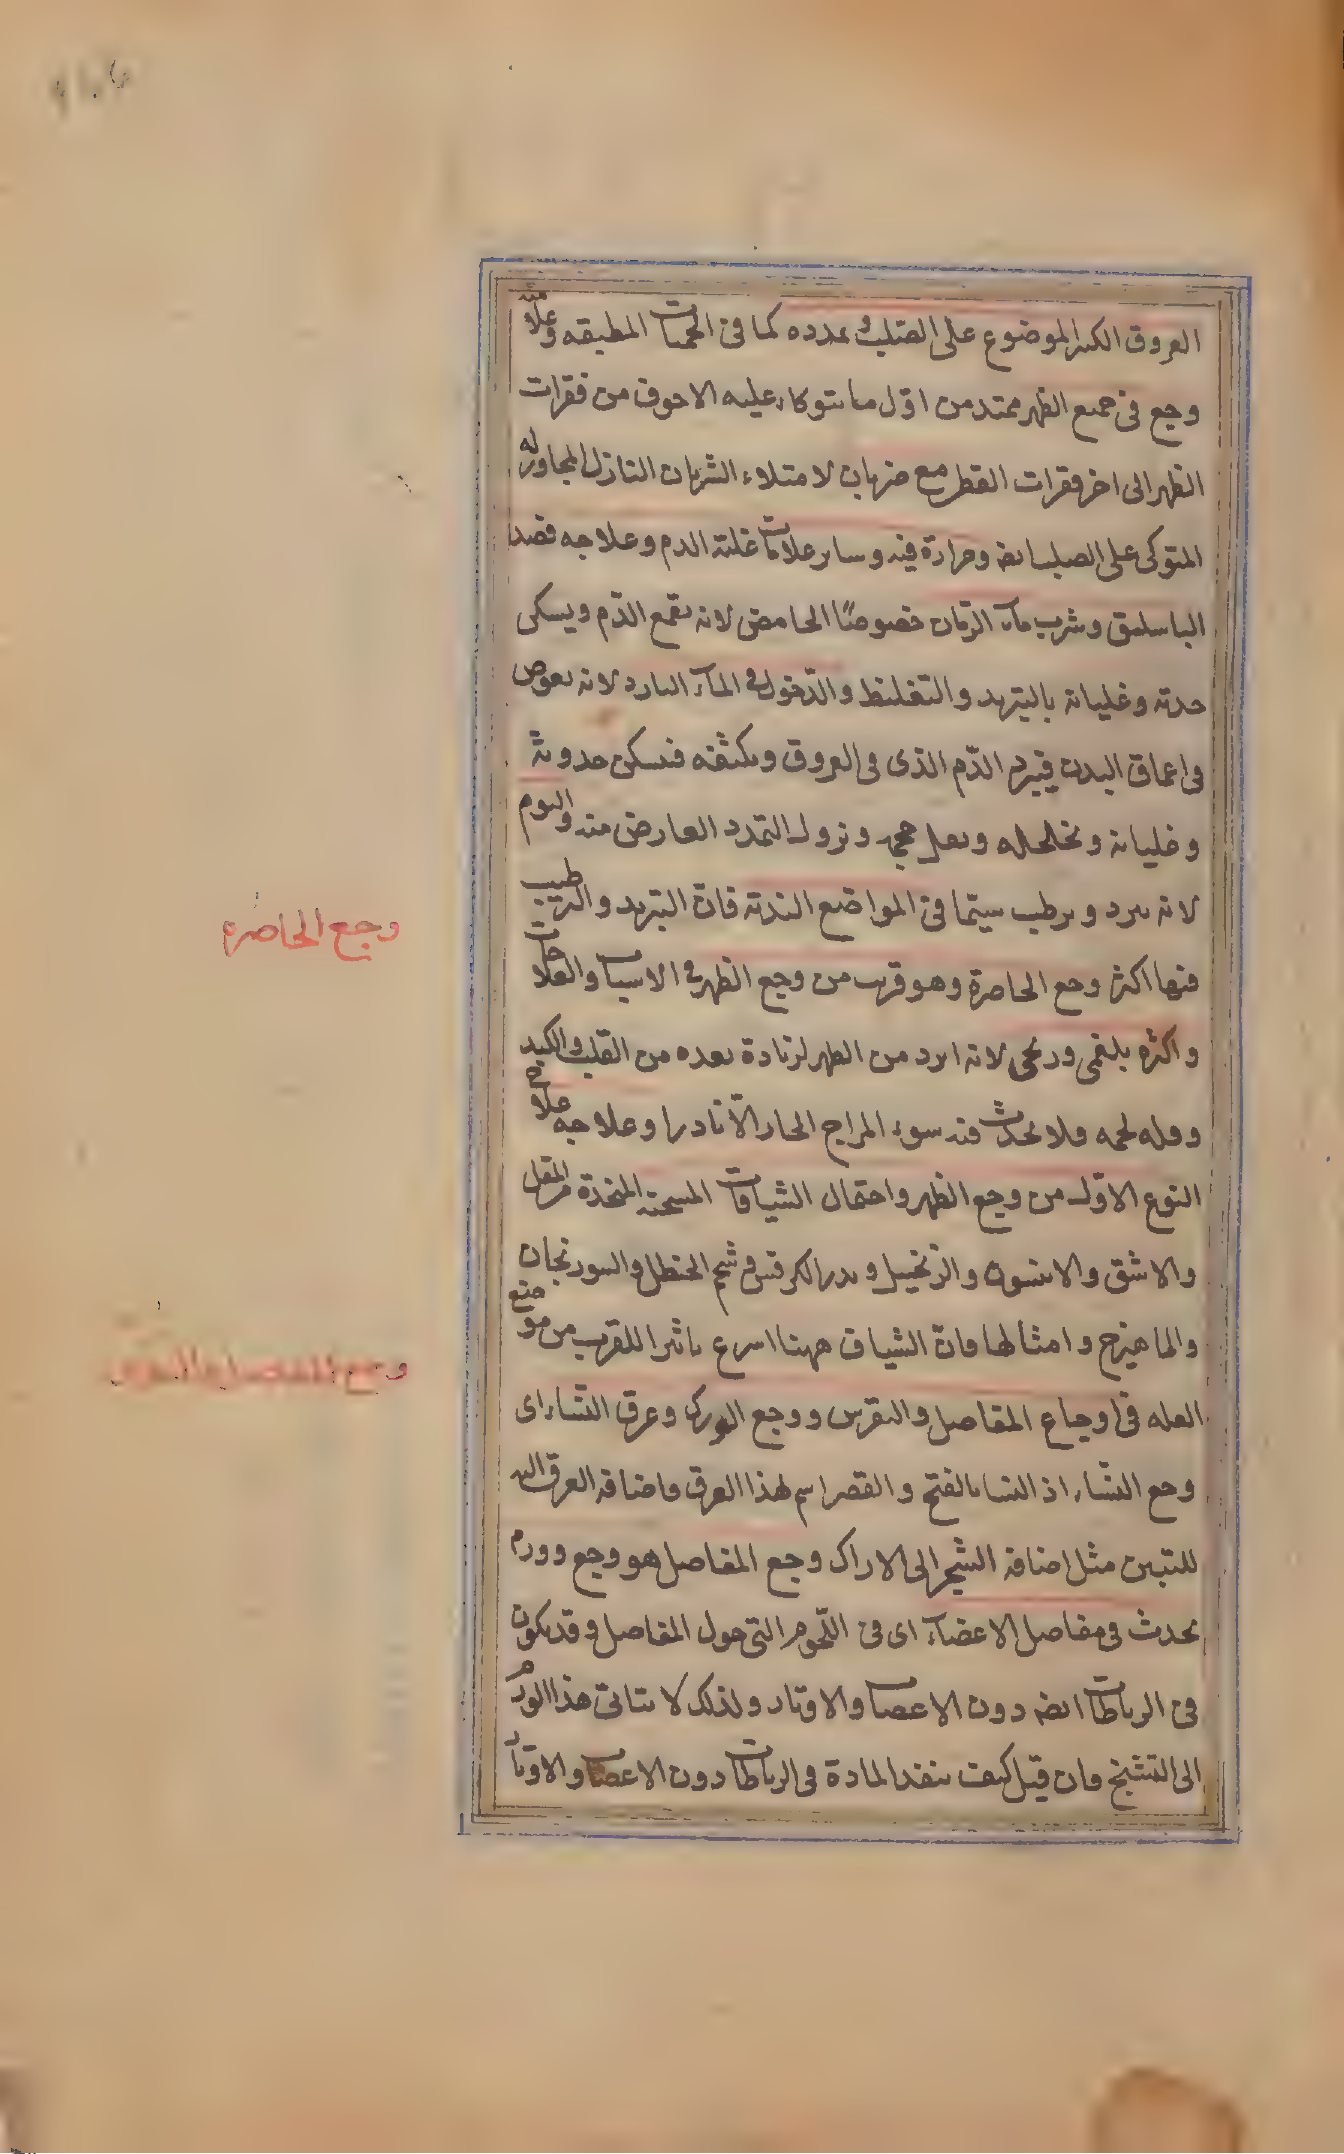 العروق الكبير الموضوع على الصلب و تمدده كما فى الحميات المطبقه وعلامته
وجع فى جميع الظهر ممتد من اوّل ما يتوكاء عليه الاجوف من فقرات
الظهر الى اخر فقرات القطن مع ضربان لامتلاء الشريان النازل المجاور له
المتوكى على الصلب ايضا وحرارة فيه وساير علامات غلبة الدم وعلاجه فصد
الباسليق وشرب مآء الرمّان خصوصًا الحامض لانه يقمع الدّم ويسكن
حدته وغليانه بالتبريد والتغليظ والدّخول فى المآء البارد لانه يغوص
فى اعماق البدن فيبرد الدّم الذى فى العروق ويكثفه فيسكن حدوثه
وغليانه وتخلخله ويقل حجمه ويزول التمدد العارض منه والنوم
لانه يبرد ويرطب سيّما فى المواضع النديّة فانّ التبريد والترطيب
فيها اكثر وجع الخاصرة وهو قريب من وجع الظهر فى الاسباب والعلاجات
واكثره بلغمى وريحى لانه ابرد من الظهر لزيادة بعده من القلب والكبد
وقله لحمه فلا يحدث فيه سوء المزاج الحار الّا نادرا وعلاجه علاج
النوع الاوّل من وجع الظهر واحتمال الشيافات المسخنة المتخذة من المقل
والاشق والانيسون والزنجبيل و بزر الكرفس و شحم الحنظل والسورنجان
والماهيزج وامثالها فانّ الشياف ههنا اسرع تاثيرا للقرب من موضع
العله فى اوجاع المفاصل والنقرس ووجع الورك وعرق النّساء اى
وجع النّساء اذ النسا بالفتح والقصر اسم لهذا العرق واضافه العرق اليه
للتبيين مثل اضافة الشجر الى الاراك وجع المفاصل هو وجع وورم
يحدث فى مفاصل الاعضآء اى فى اللّحوم التى حول المفاصل وقد يكون
فى الرباطات ايضا دون الاعصاب والاوتار ولذلك لا يتادى هذا الورم
الى التشنج فان قيل كيف ينفذ المادة فى الرباطات دون الاعصاب والاوتار
وجع الخاصرة
وجع المفاصل والنقرس